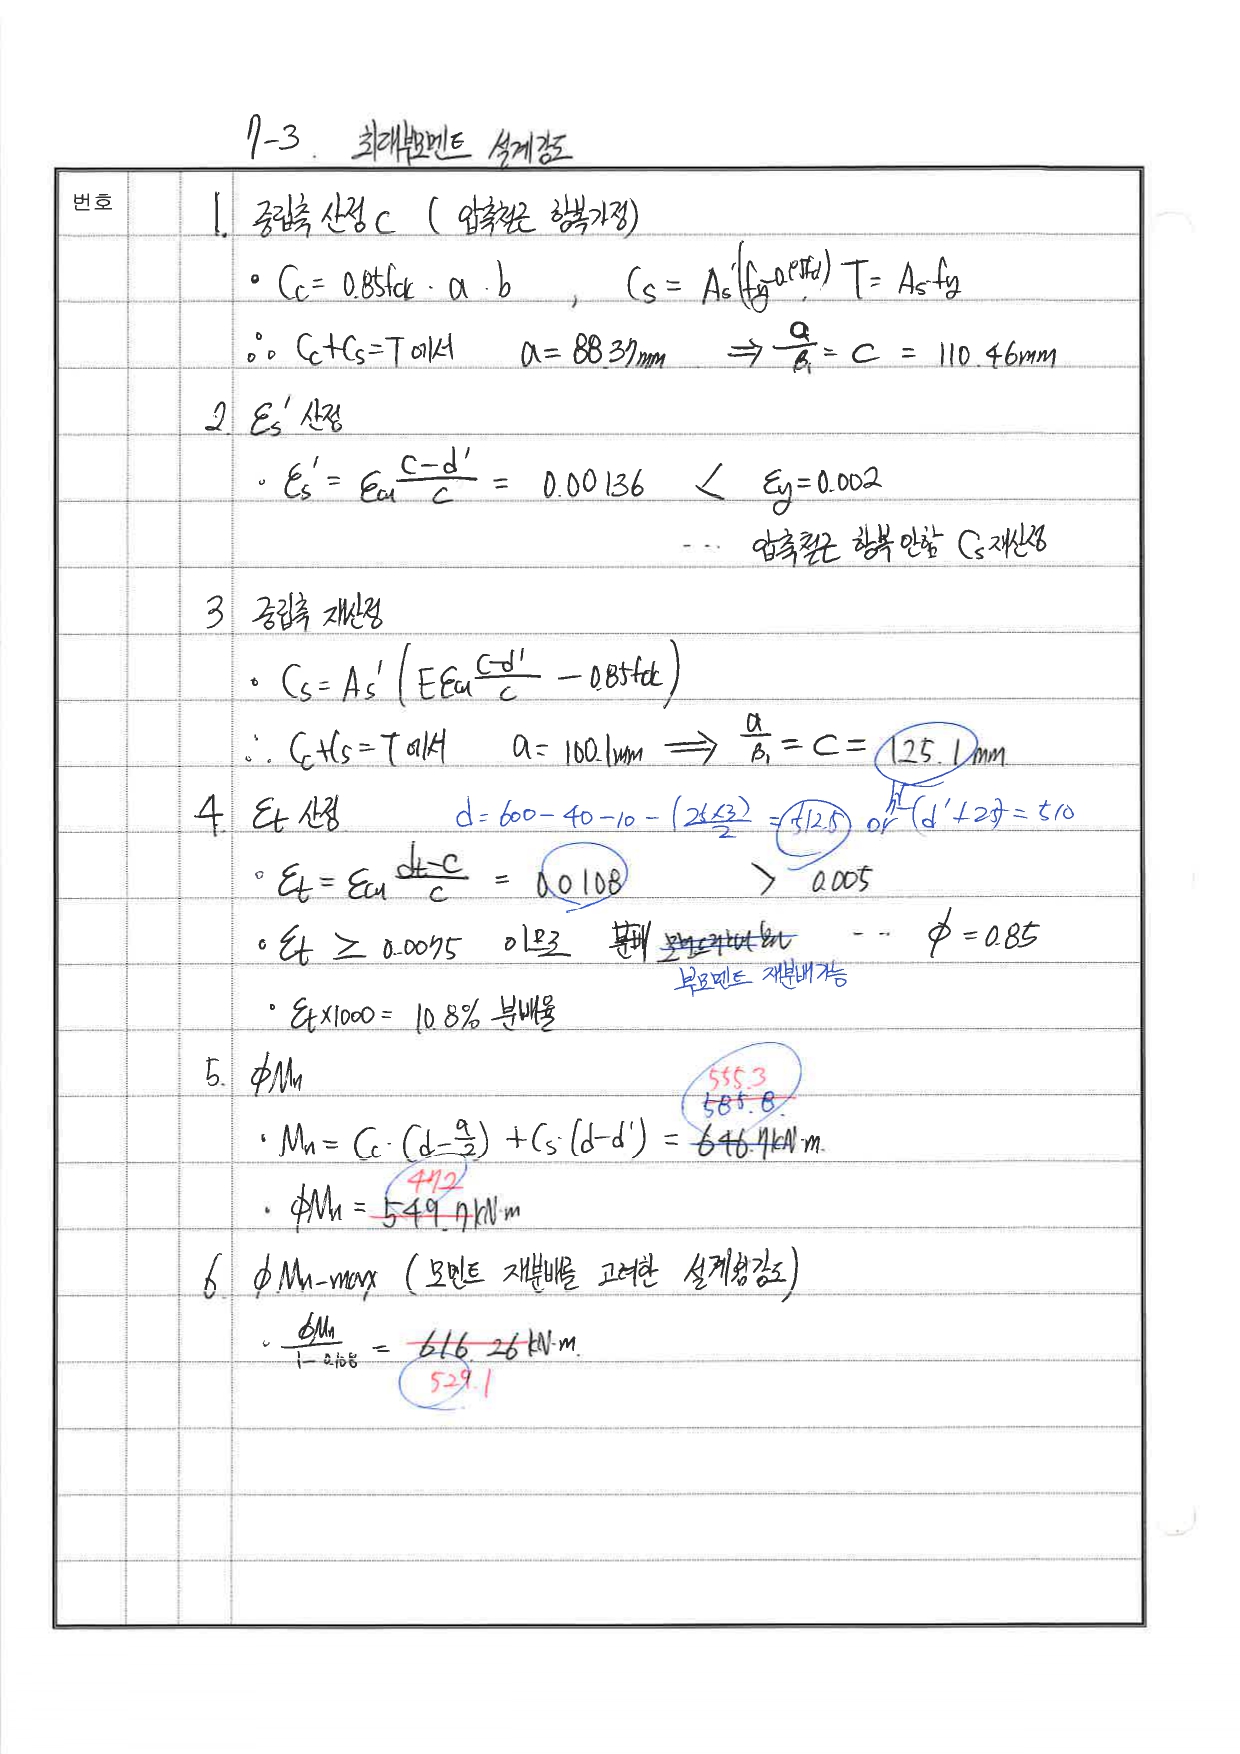 7-3. 최대부모멘트 설계강도
번호
1. 중립축 산정 C ( 압축철근 항복가정)
• Cc = 0.85fck · a · b , Cs = As'(fy-0.85fck) T = As fy
∴ Cc+Cs = T 에서 a = 88.37mm ⇒ a/β₁ = C = 110.46mm
2. εs' 산정
• εs' = εcu (C-d')/C = 0.00136 < εy = 0.002
... 압축철근 항복 안함 Cs 재산정
3 중립축 재산정
• Cs = As' ( E εcu (C-d')/C - 0.85fck )
∴ Cc+Cs = T 에서 a = 100.1mm ⇒ a/β₁ = C = 125.1mm
4. εt 산정 d = 600-40-10-(25×3)/2 = 512.5 or h-(d'+25) = 510
• εt = εcu (dt-C)/C = 0.0108 > 0.005
• εt ≥ 0.0075 이므로 분배 ... φ = 0.85
부모멘트 재분배가능
• εt×1000 = 10.8% 분배율
5. φMn
555.3
585.8
• Mn = Cc · (d-a/2) + Cs · (d-d') = 646.7kN·m
472
• φMn = 549.7kN·m
6 φMn-max ( 모멘트 재분배를 고려한 설계휨강도)
• φMn/(1-0.108) = 616.26kN·m
529.1